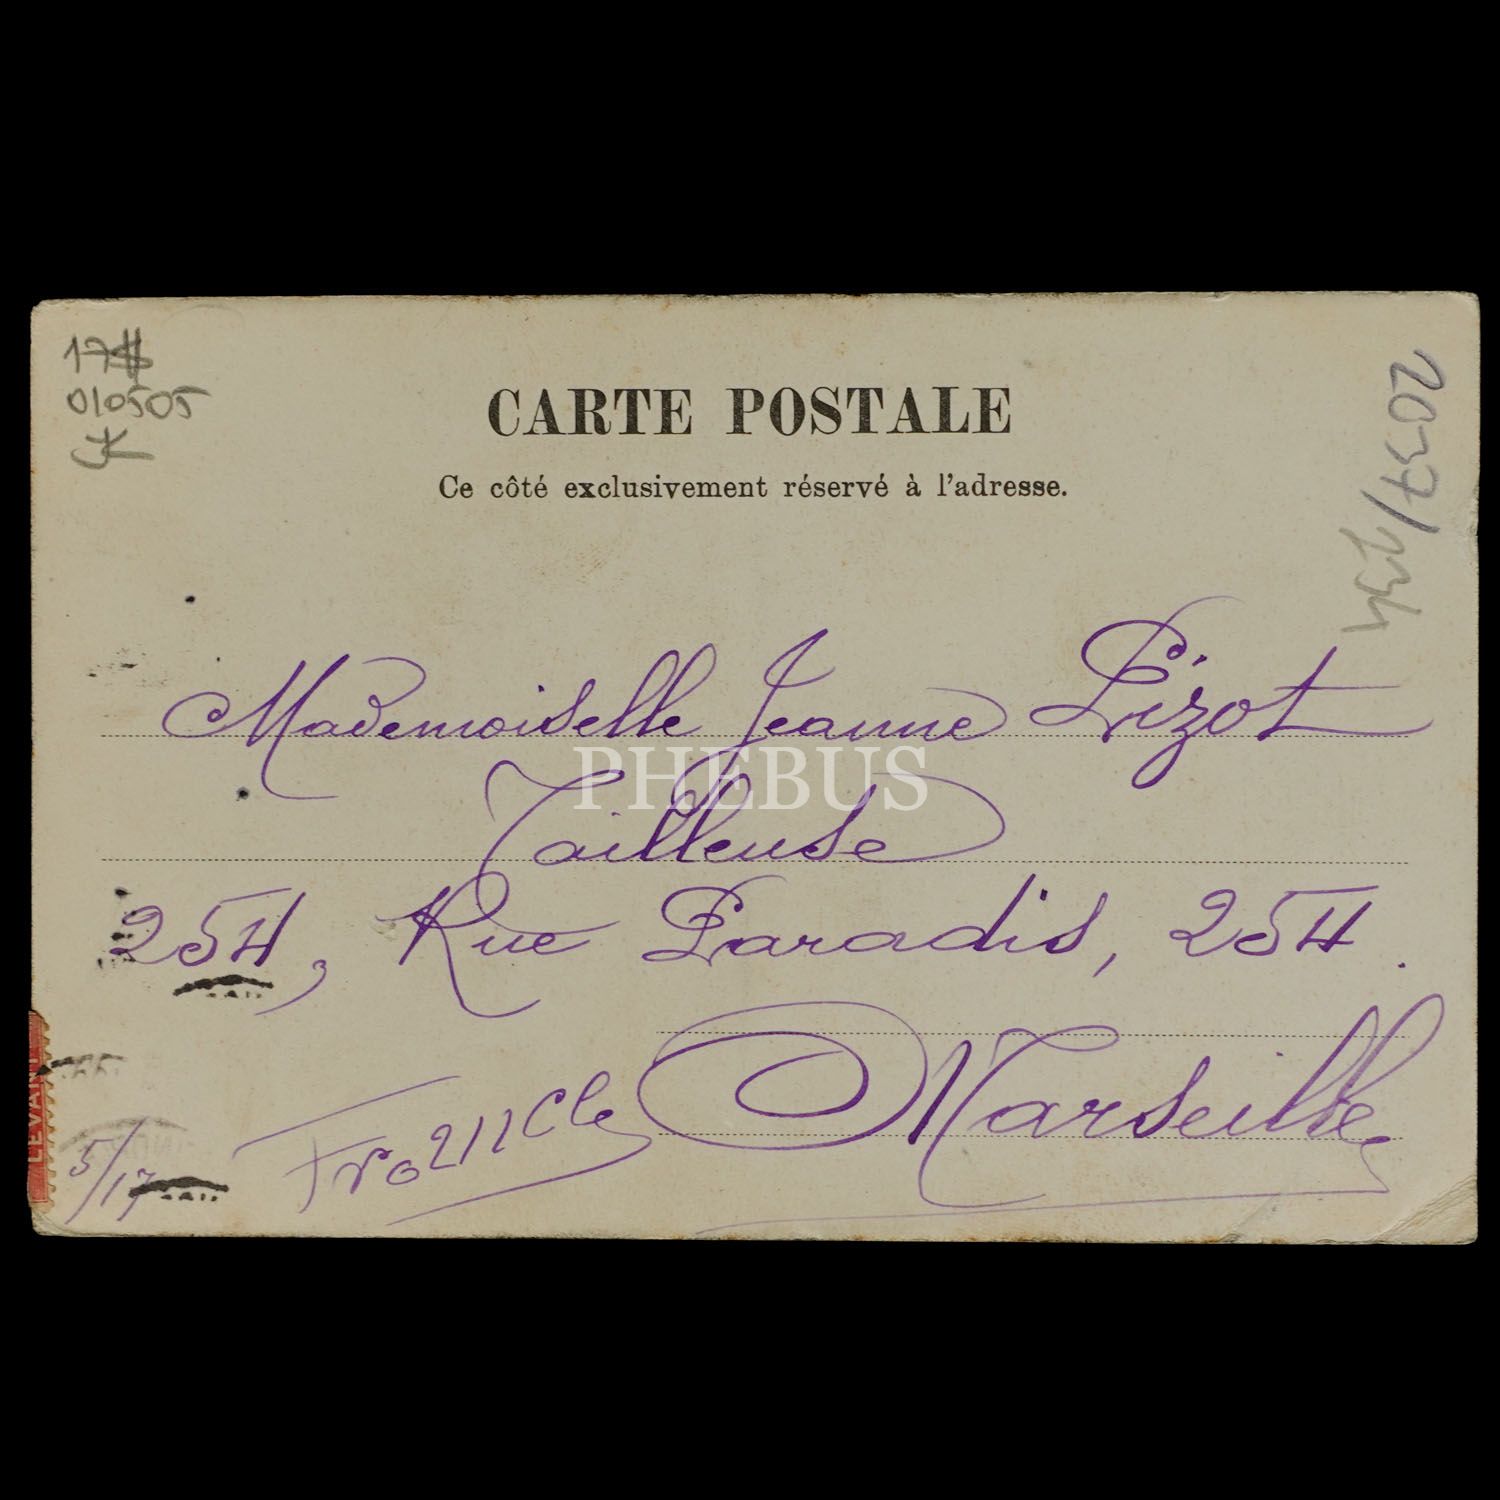 17$
010505
CARTE POSTALE
Ce côté exclusivement réservé à l'adresse.
2037/
Mademoiselle Jeanne Lizot
PHEBUS
Tailleuse
254, Rue Paradis, 254.
Marseille
LEVANT
5/17